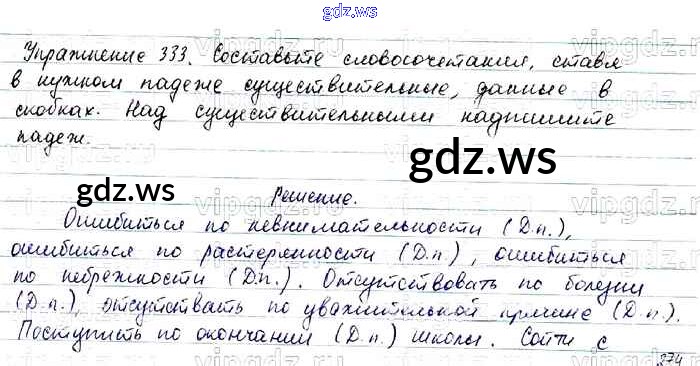 gdz.ws
Упражнение 333. Составьте словосочетания, ставя
в нужном падеже существительные, данные в
скобках. Над существительными надпишите
падеж.
gdz.ws
gdz.ws
Решение.
Ошибиться по невнимательности (Д.п.),
ошибиться по растерянности (Д.п.), ошибиться
по небрежности (Д.п.). Отсутствовать по болезни
(Д.п.), отсутствать по уважительной причине (Д.п.).
Поступить по окончании (Д.п.) школы. Сойти с
gdz.ws
274